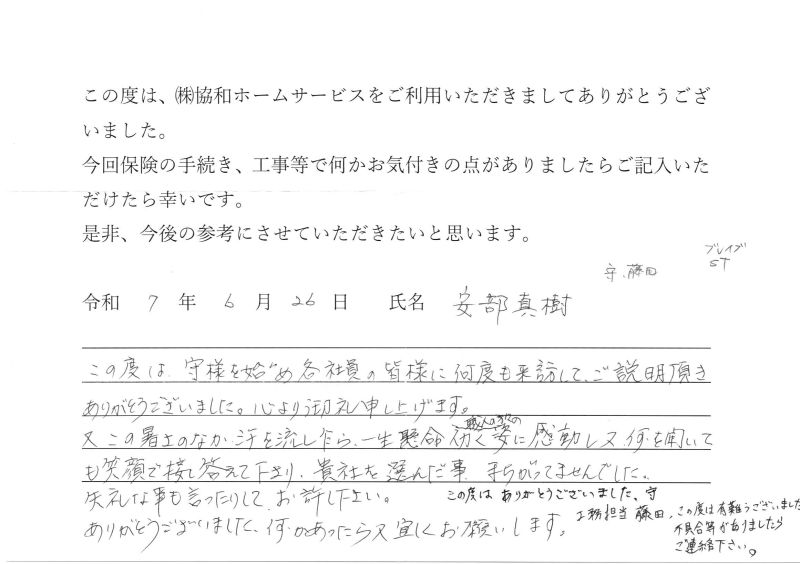 この度は、㈱協和ホームサービスをご利用いただきましてありがとうござ
いました。
今回保険の手続き、工事等で何かお気付きの点がありましたらご記入いた
だけたら幸いです。
是非、今後の参考にさせていただきたいと思います。
守、藤田
ブレイブ
ST
令和 7 年 6 月 26 日 氏名 安部真樹
この度は、守様を始め各社員の皆様に何度も来訪して、ご説明頂き
ありがとうございました。心より御礼申し上げます。
職人の方の
又この暑さのなか、汗を流し乍ら、一生懸命効く姿に感動し又何を聞いて
も笑顔で接し答えて下さり、貴社を選んだ事、まちがってませんでした。
失礼な事も言ったりして、お許し下さい。
ありがとうございました、何かあったら又宜しくお願いします。
この度は ありがとうございました、守
工務担当 藤田、この度は有難うございました
不具合等がありましたら
ご連絡下さい。